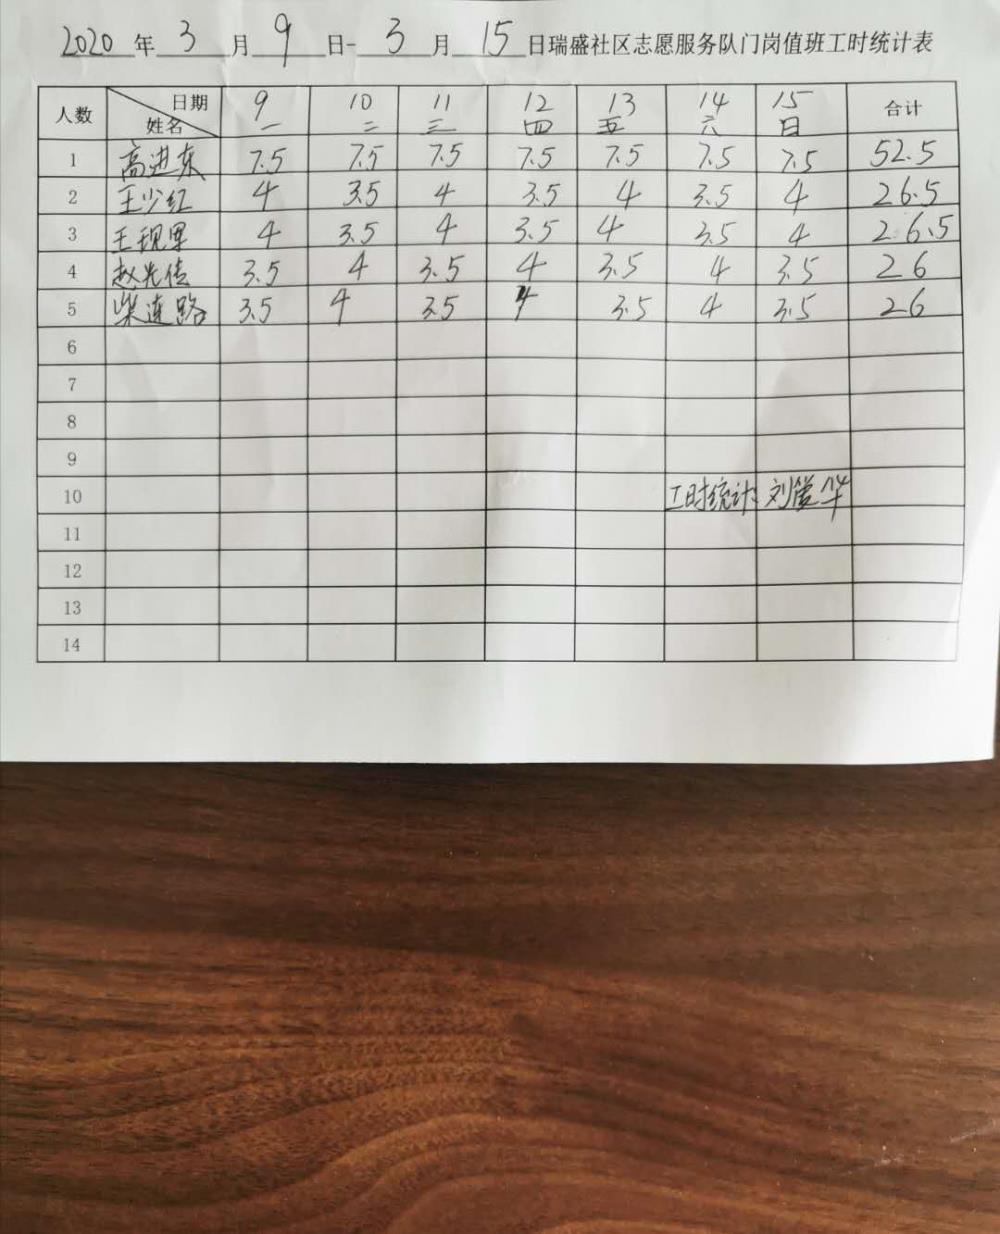 2020 年 3 月 9 日- 3 月 15 日瑞盛社区志愿服务队门岗值班工时统计表
人数 日期 姓名 9 一 10 二 11 三 12 四 13 五 14 六 15 日 合计
1 高进东 7.5 7.5 7.5 7.5 7.5 7.5 7.5 52.5
2 王少红 4 3.5 4 3.5 4 3.5 4 26.5
3 王现军 4 3.5 4 3.5 4 3.5 4 26.5
4 赵光信 3.5 4 3.5 4 3.5 4 3.5 26
5 柴连路 3.5 4 3.5 4 3.5 4 3.5 26
6
7
8
9
10 工时统计: 刘俊华
11
12
13
14